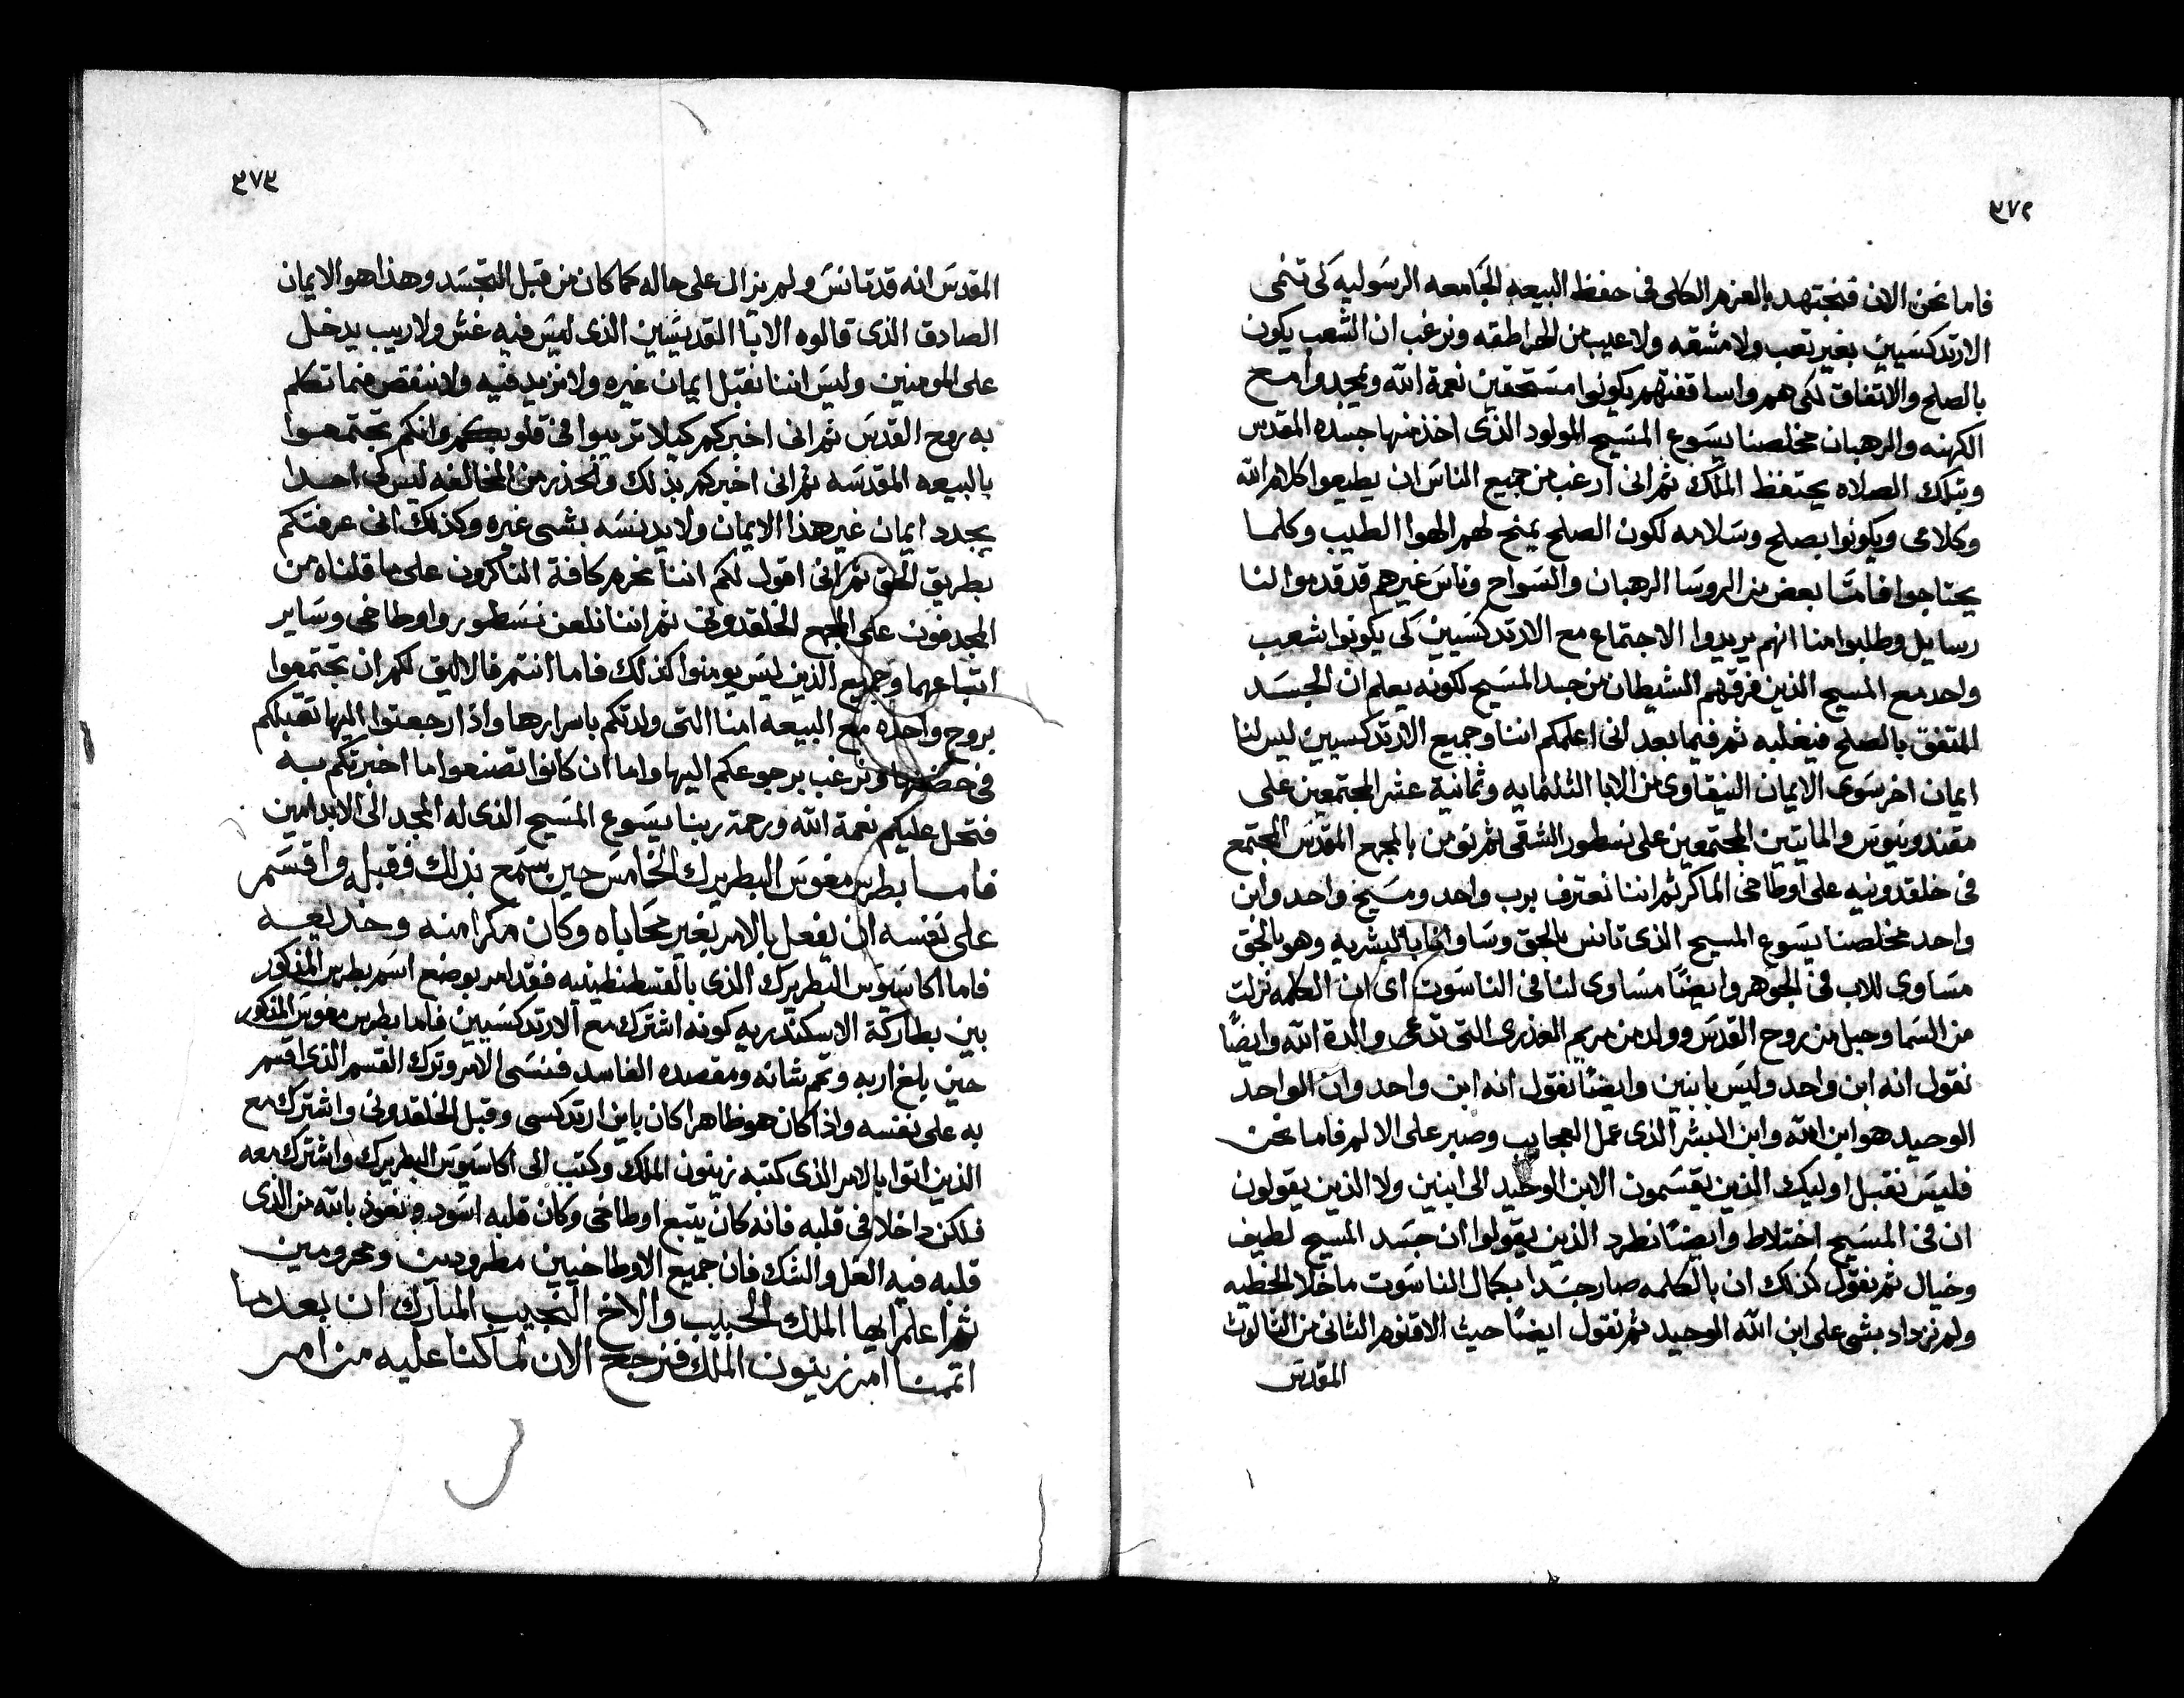 ٣٧٢
فاما نحن الان فنجتهد بالعزم الكلى فى حفظ البيعه الجامعه الرسوليه كى تنمى
الارتدكسيين بغير تعب ولا مشقه ولا عيب من الهراطقه ونرغب ان الشعب يكون
بالصلح والاتفاق لكى هم واساقفتهم يكونوا مستحقين نعمة الله ويمجدوا مع
الكهنه والرهبان مخلصنا يسوع المسيح المولود الذى اخذ منها جسده المقدس
وبتلك الصلاه يحتفظ الملك ثم انى ارغب من جميع الناس ان يطيعوا كلام الله
وكلامى ويكونوا بصلح وسلامه لكون الصلح يمنح لهم الهوا الطيب وكلما
يحتاجوا فامّا بعض من الروسا الرهبان والسواح وناس غيرهم قد قدموا لنا
رسايل وطلبوا منا انهم يريدوا الاجتماع مع الارتدكسيين كى يكونوا شعب
واحد مع المسيح الذين فرقهم الشيطان من جسد المسيح لكونه يعلم ان الجسد
المتفق بالصلح فيغلبه ثم فيما بعد انى اعلمكم اننا وجميع الارتدكسيين ليس لنا
ايمان اخر سوى الايمان النيقاوى من الابا الثلثمايه وثمانية عشر المجتمعين على
مقندونيوس والمايتين المجتمعين على نسطور الشقى ثم نومن بالمجمع المقدس المجتمع
فى خلقدونيه على اوطاخى الماكر ثم اننا نعترف برب واحد ومسيح واحد وابن
واحد مخلصنا يسوع المسيح الذى تانس بالحق وساوانا بالبشريه وهو بالحق
مساوى للاب فى الجوهر وايضًا مساوى لنا فى الناسوت اى ان الكلمه نزلت
من السما وحبل من روح القدس وولد من مريم العذرى التى تدعى والدة الله وايضًا
نقول انه ابن واحد وليس بابنين وايضًا نقول انه ابن واحد وان الواحد
الوحيد هو ابن الله وابن البشر الذى عمل العجايب وصبر على الالم فاما نحن
فليس نقبل اوليك الذين يقسمون الابن الوحيد الى ابنين ولا الذين يقولون
ان فى المسيح اختلاط وايضًا نطرد الذين يقولوا ان جسد المسيح لطيف
وخيال ثم نقول كذلك ان بالكلمه صار جسدا بكمال الناسوت ما خلا الخطيه
ولم نزداد بشى على ابن الله الوحيد ثم نقول ايضًا حيث الاقنوم الثانى من الثالوث
المقدس
٣٧٣
المقدس انه قد تانس ولم يزال على حاله كما كان من قبل التجسد وهذا هو الايمان
الصادق الذى قالوه الابا القديسيين الذى ليس فيه غش ولا ريب يدخل
على المومنين وليس اننا نقبل ايمان غيره ولا نزيد فيه ولا ننقص مما تكلم
به روح القدس ثم انى اخبركم كيلا تريبوا فى قلوبكم وانكم تجتمعوا
بالبيعه المقدسه ثم انى اخبركم بذلك والحذر من المخالفه ليس لى احدا
يجدد ايمان غير هذا الايمان ولا يدنسه بشى غيره وكذلك انى عرفتكم
بطريق الحق ثم انى اقول لكم اننا نحرم كافة الناكرون على ما قلناه من
المجدفون على المجمع الخلقدونى ثم اننا نلعن نسطور واوطاخى وساير
اتباعهما وجميع الذين ليس يومنوا كذلك فاما انتم فالاليق لكم ان تجتمعوا
بروح واحده مع البيعه امنا التى ولدتكم باسرارها واذا رجعتوا اليها تقبلكم
فى حضنها ونرغب برجوعكم اليها واما ان كانوا تصنعوا ما اخبرتكم به
فتحل عليكم نعمة الله ورحمة ربنا يسوع المسيح الذى له المجد الى الابد امين
فاما بطرس مغوس البطريرك الخامس حين سمع بذلك فقبل واقسم
على نفسه ان يفعل بالامر بغير محاباه وكان مكرا منه وخديعه
فاما اكاسيوس البطريرك الذى بالقسطنطينيه فقد امر بوضع اسم بطرس المذكور
بين بطاركة الاسكندريه كونه اشترك مع الارتدكسيين فاما بطرس مغوس المذكور
حين بلغ اربه وتم شانه ومقصده الفاسد فنسى الامر وترك القسم الذى اقسم
به على نفسه واذا كان هو ظاهرا كان باين ارتدكسى وقبل الخلقدونى واشترك مع
الذين اتوا بالامر الذى كتبه زينون الملك وكتب الى اكاسيوس البطريرك واشترك معه
فلكن داخلا فى قلبه فانه كان يتبع اوطاخى وكان قلبه اسود ونعوذ بالله من الذى
قلبه فيه الغل والشك فان جميع الاوطاخيين مطرودين ومحرومين
ثم اعلم ايها الملك الحبيب والاخ النجيب المبارك ان بعد ما
اتممنا امر زينون الملك فنرجع الان لما كنا عليه من امر